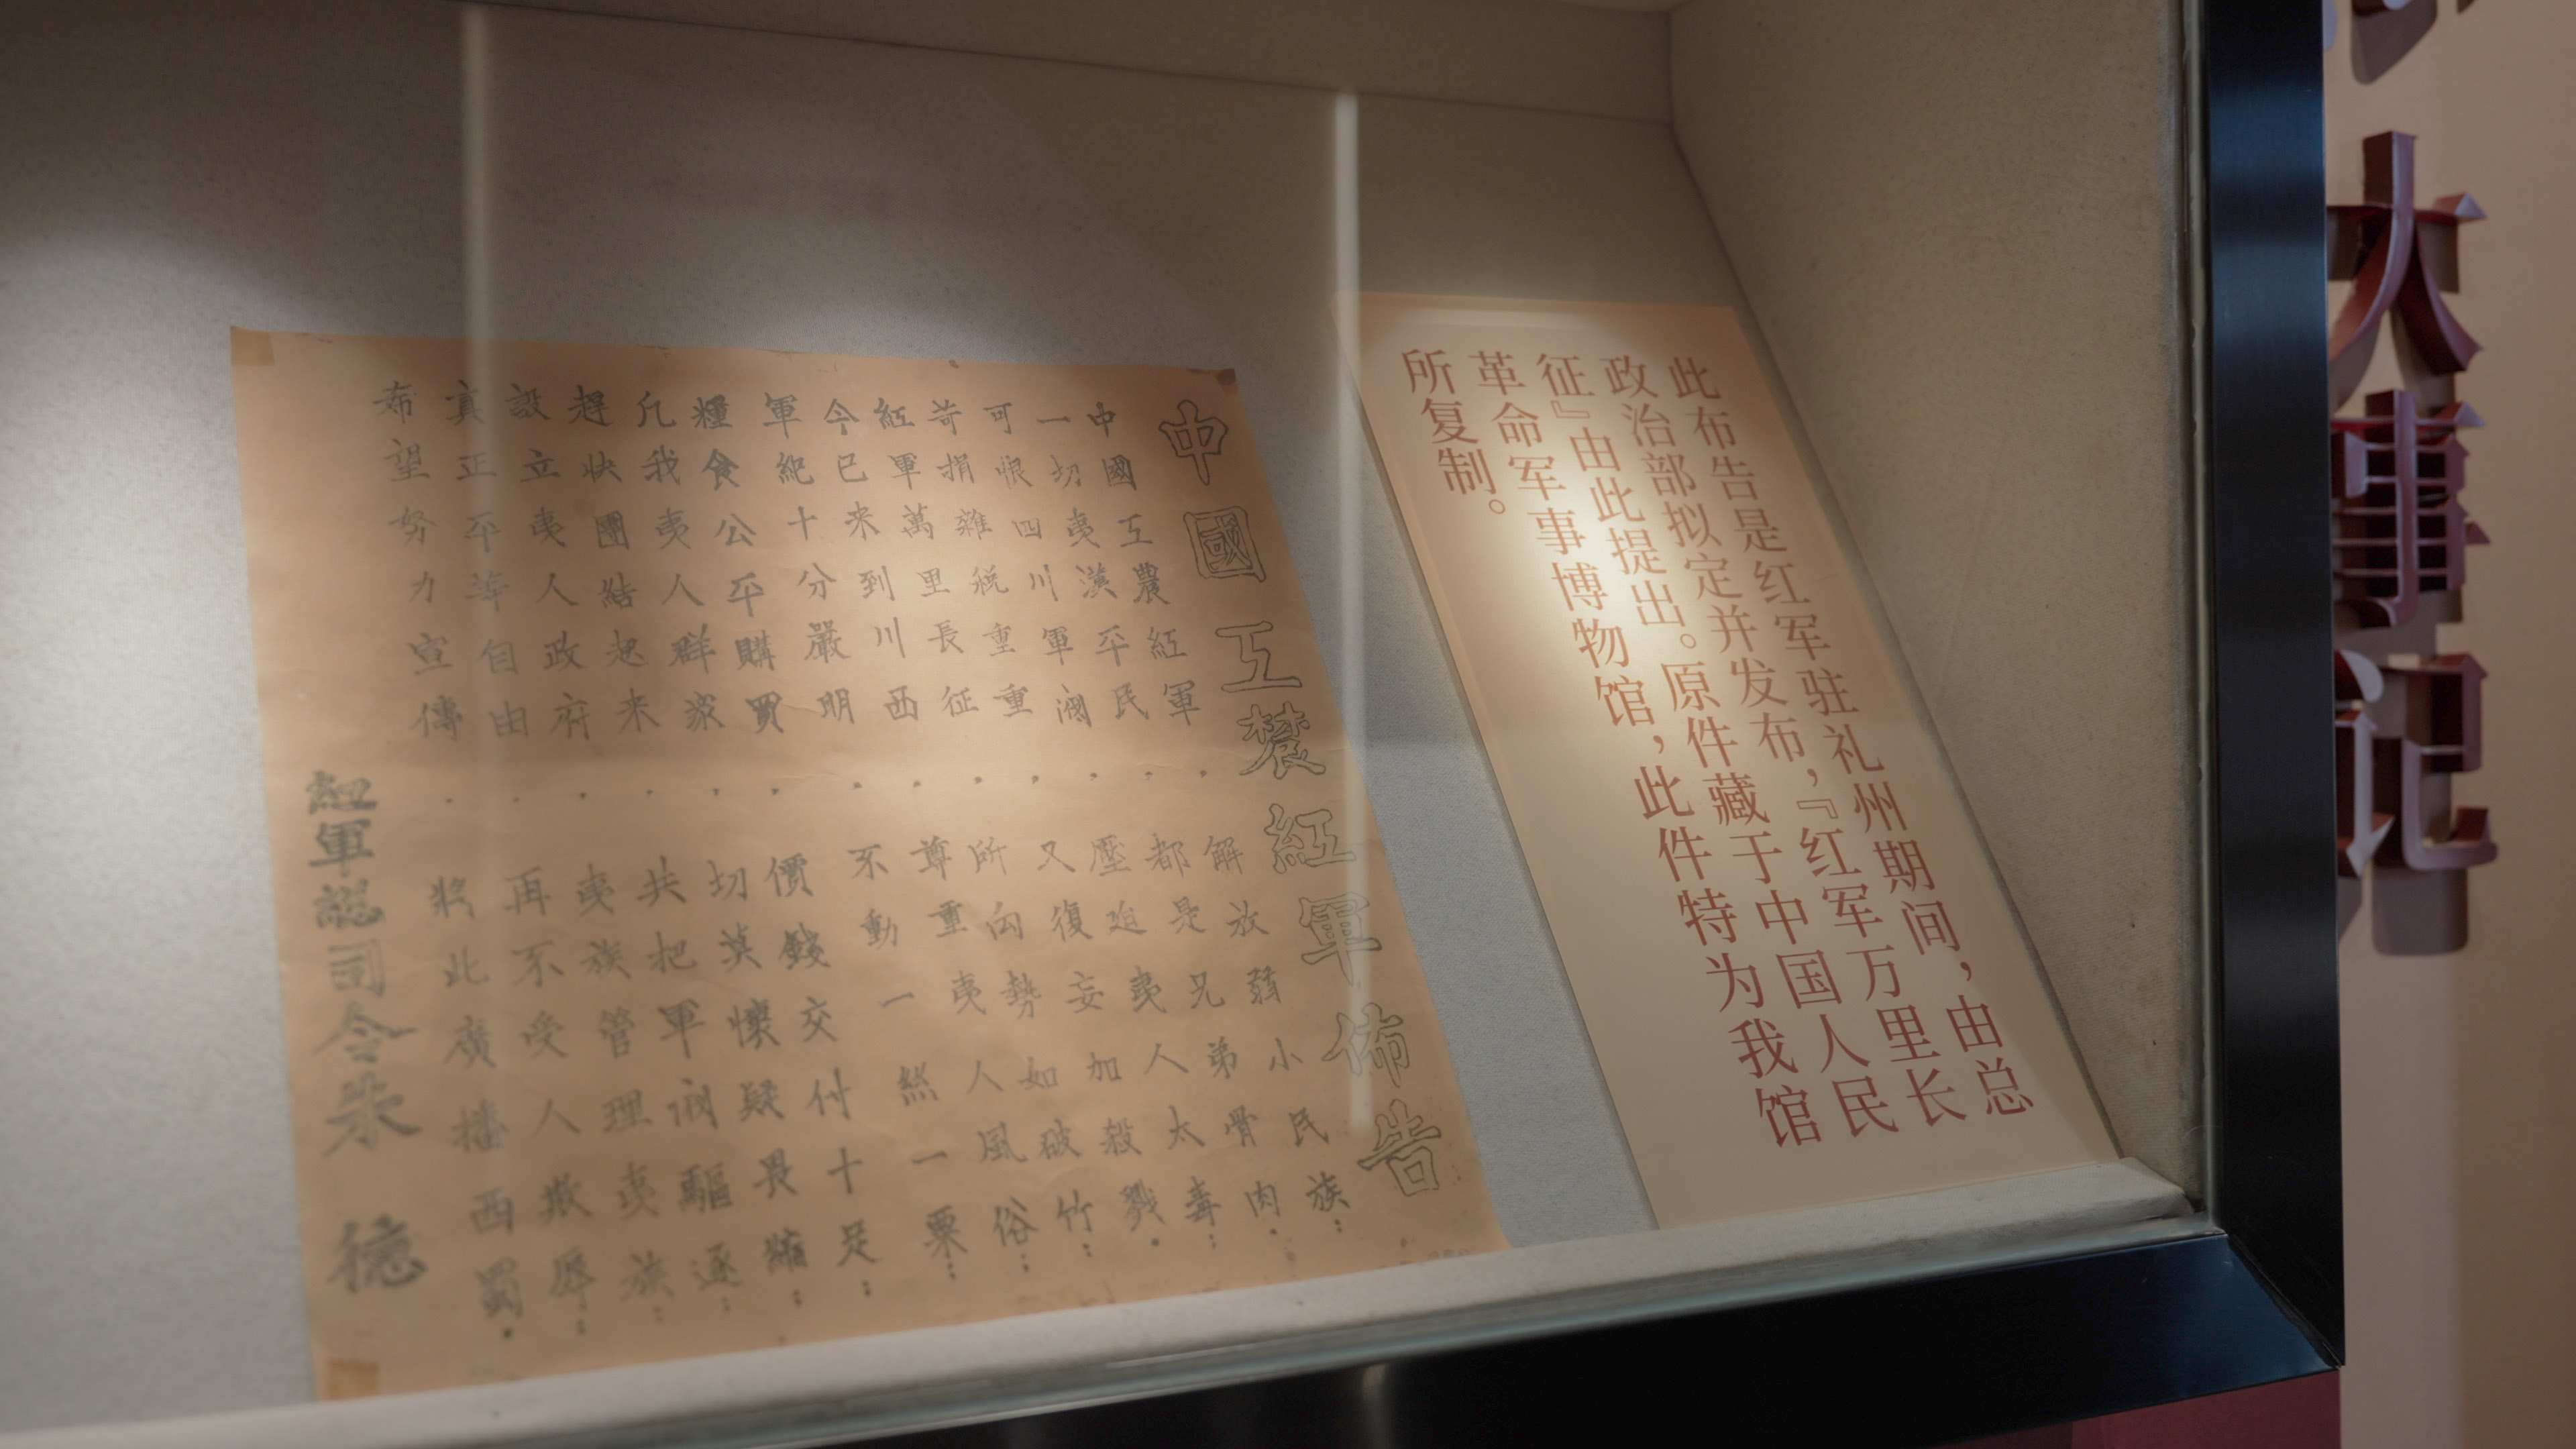 大事记
此布告是红军驻礼州期间，由总
政治部拟定并发布，『红军万里长
征』由此提出。原件藏于中国人民
革命军事博物馆，此件特为我馆
所复制。
中國工農紅軍佈告
中國工農紅軍．解放弱小民族：
一切夷漢平民．都是兄弟骨肉．
可恨四川軍閥．壓迫夷人太毒：
苛捐雜稅重重．又復妄加殺戮．
紅軍萬里長征．所向勢如破竹：
今已來到川西．尊重夷人風俗：
軍紀十分嚴明．不動一絲一粟：
糧食公平購買．價錢交付十足：
凡我夷人群眾．切莫懷疑畏縮：
趕快團結起來．共把軍閥驅逐：
設立夷人政府．夷族管理夷族：
真正平等自由．再不受人欺辱：
希望努力宣傳．將此廣播西蜀．
紅軍總司令朱德